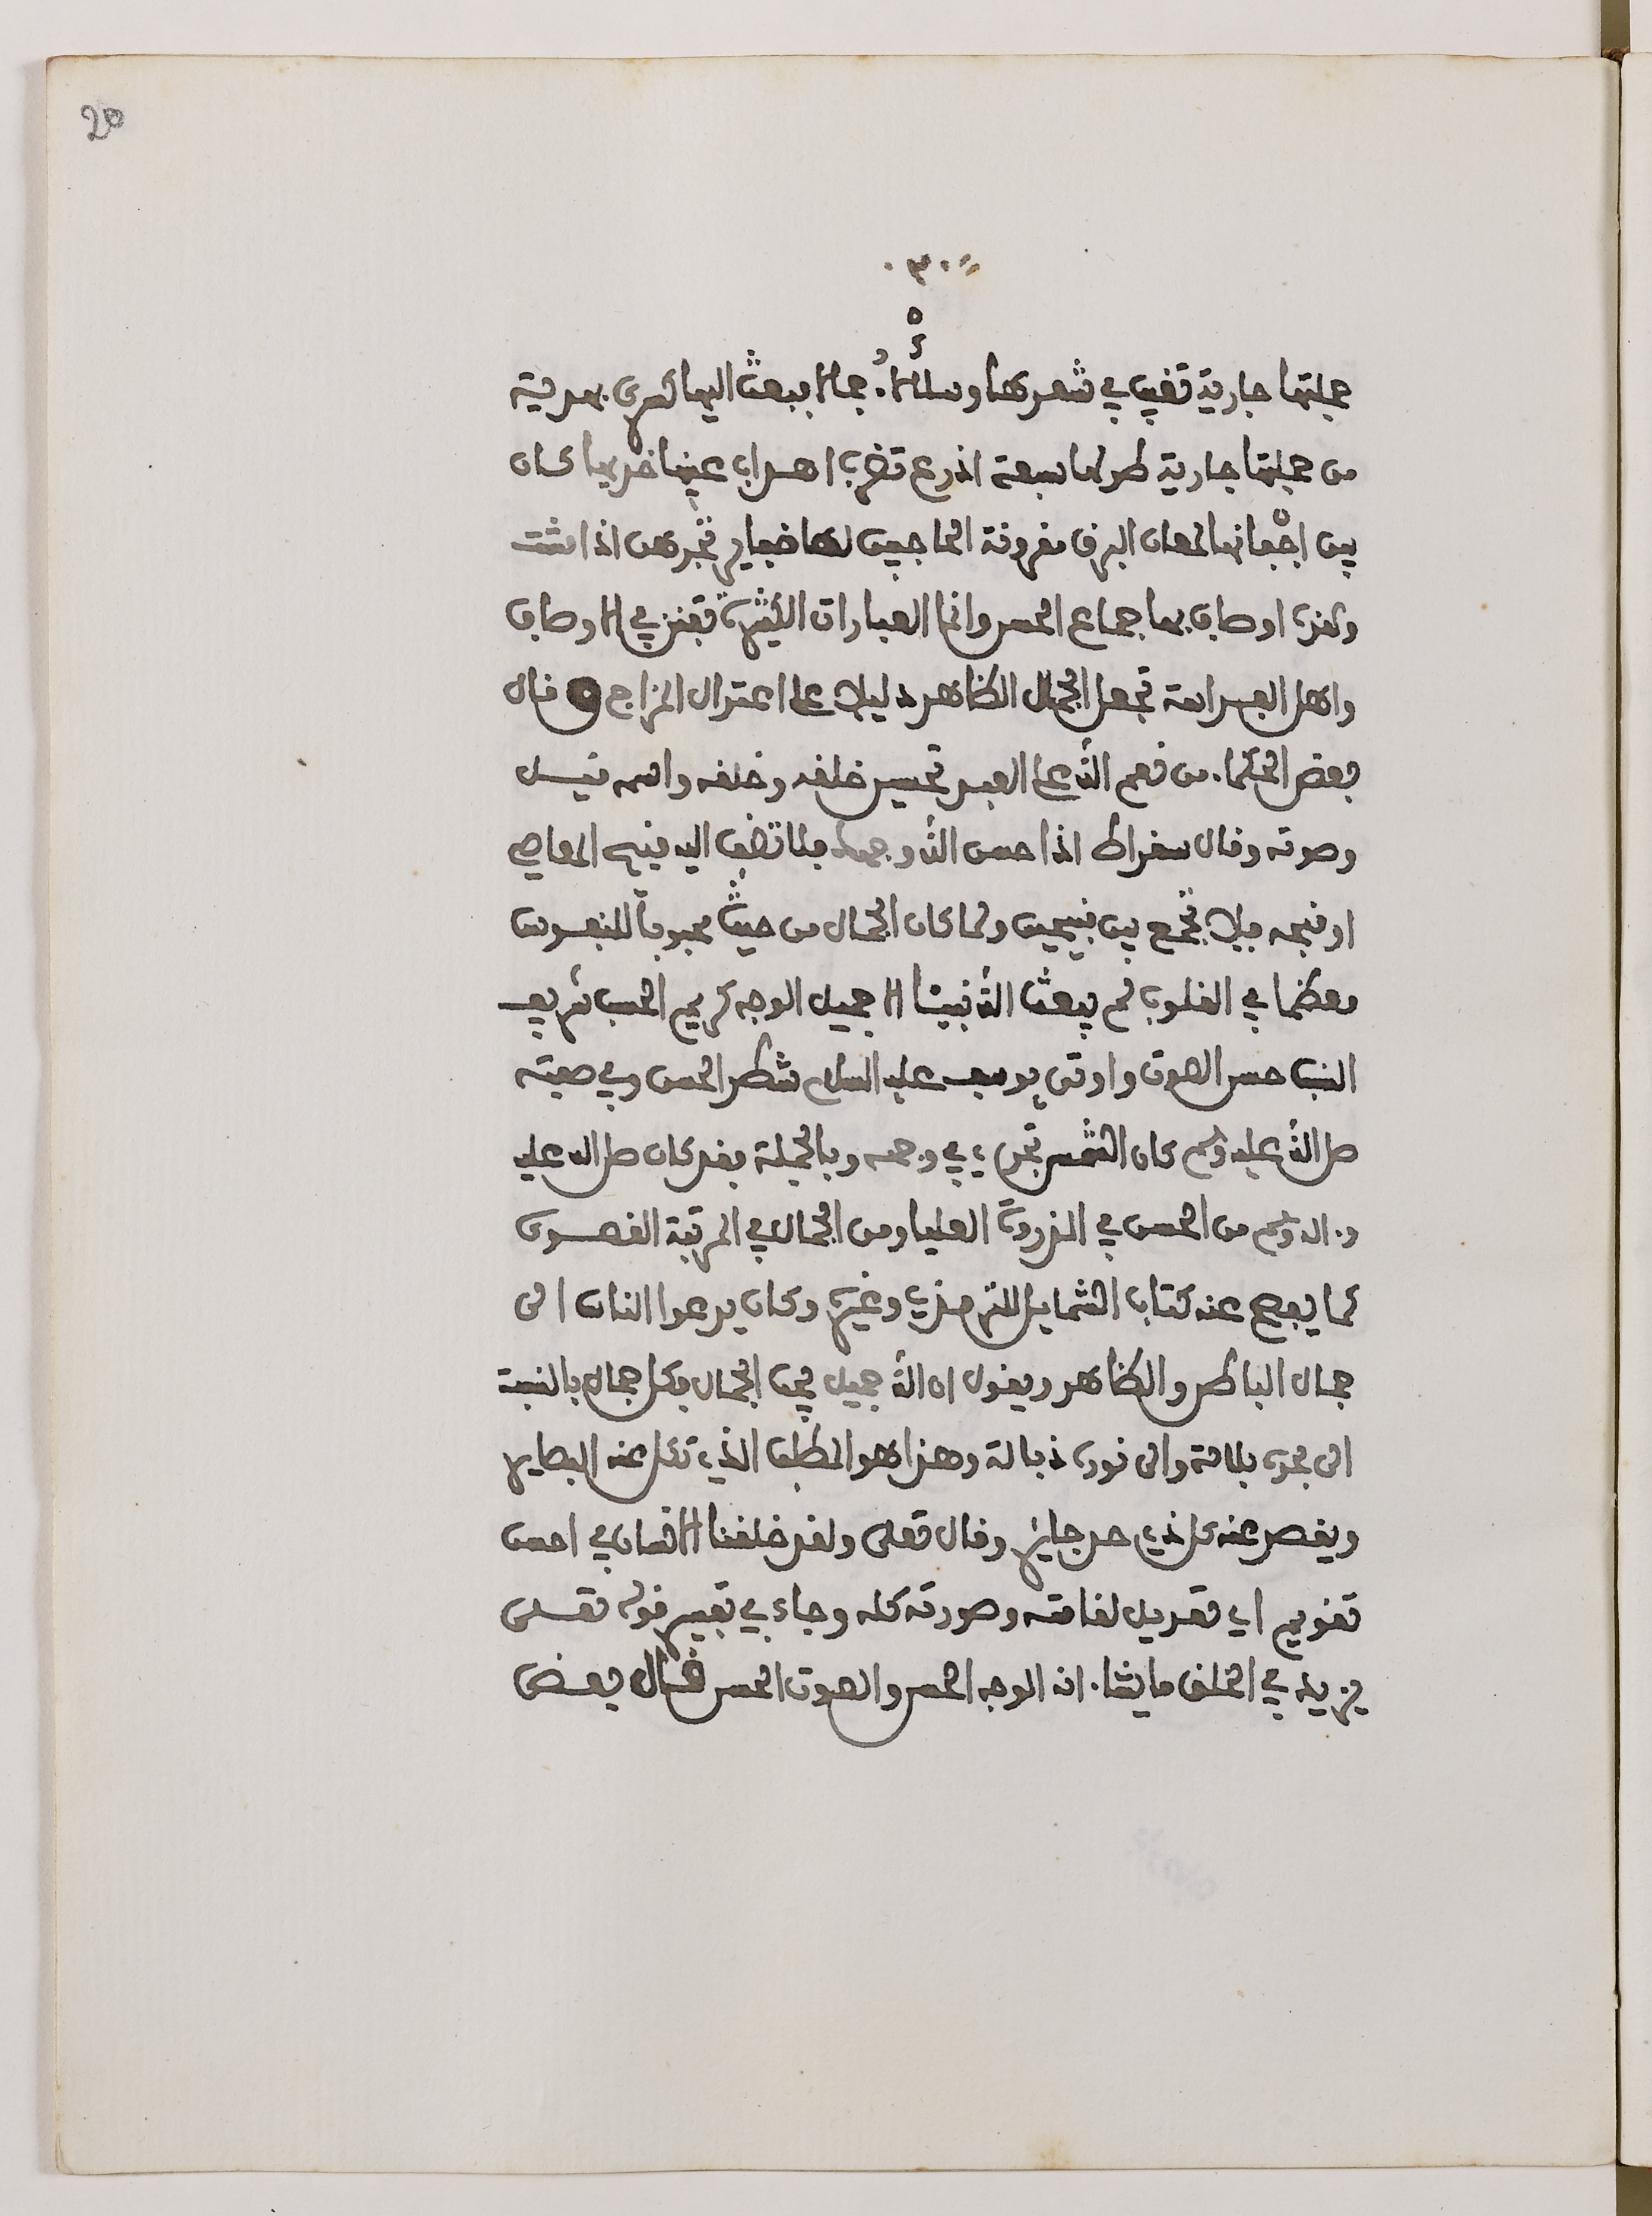 20
٣٠
جملتها جارية تغيب في شعرها وتتلألأ جمالا فبعث اليها كسرى بهدية
من جملتها جارية طولها سبعة اذرع تضرب اهداب عينها خديها كان
بين اجفانها لمعان البرق مقرونة الحاجبين لها ضفاير تجرهن اذا مشت
وهذه اوصاف بها جماع الحسن وانما العبارات الكثيرة تفنن في الاوصاف
واهل الفراسة تجعل الجمال الظاهر دليلا على اعتدال المزاج قال
بعض الحكما من نعم الله على العبد تحسين خلقه وخلقه واسمه
وصوته وقال سقراط اذا حسن الله وجهك فلا تضف اليه قبيح المعاصي
او قبحه فلا تجمع بين قبيحين ولما كان الجمال من حيث محبوبا للنفوس
معظما في القلوب لم يبعث الله نبيئا الا جميل الوجه كريم الحسب شريف
النسب حسن الصوت واوتى يوسف عليه السلام شطر الحسن وفي صفته
صلى الله عليه وسلم كان الشمس تجرى في وجهه وبالجملة فقد كان صلى الله عليه
وءاله وسلم من الحسن في الذروة العليا ومن الجمال في المرتبة القصوى
كما يفصح عنه كتاب الشمايل للترمذي وغيره وكان يدعوا الناس الى
جمال الباطن والظاهر ويقول ان الله جميل يحب الجمال فكل جمال بالنسبة
الى بحره بلالة والى نوره ذبالة وهذا هو المطلب الذي تكل عنه البصاير
ويقصر عنه كل ذي حد جاير وقال تعلى ولقد خلقنا الانسان في احسن
تقويم اي تعديل لقامته وصورته كله وجاء في تفسير قوله تعلى
يزيد في الخلق ما يشاء انه الوجه الحسن والصوت الحسن قال بعض